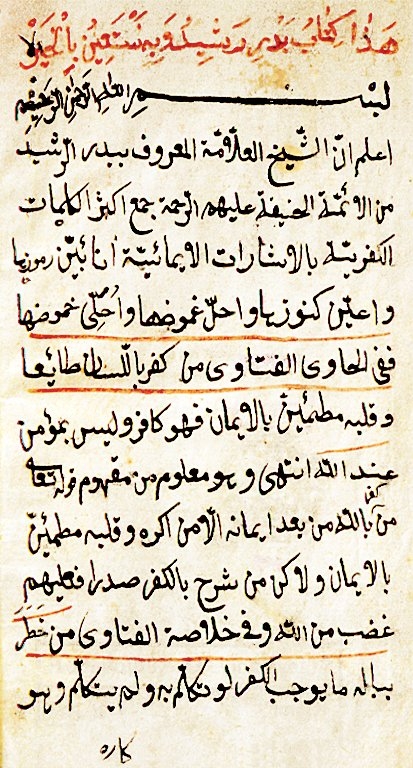 هذا كتاب بدر رشيد وبه نستعين بالخير
بسم الله الرحمن الرحيم
اعلم انّ الشّيخ العلّامة المعروف ببدر الرّشيد
من الائمّة الحنيفة عليهم الرّحمة جمع اكثر الكلمات
الكفريّة بالاشارات الايمائيّة أنا ابيّن رموزها
واعيّن كنوزها واحلّ غموضها وأحلّى خموضها
ففى الحاوى الفتاوى من كفر باللّسان طائعا
وقلبه مطمئنّ بالايمان فهو كافر وليس بمؤمن
عند الله انتهى وهو معلوم من مفهوم قوله تعالى
من كفر بالله من بعد ايمانه الّا من اكره وقلبه مطمئنّ
بالايمان ولاكن من شرح بالكفر صدرا فعليهم
غضب من الله وفى خلاصة الفتاوى من خطر
بباله ما يوجب الكفر لو تكلّم به ولم يتكلّم وهو
كاره